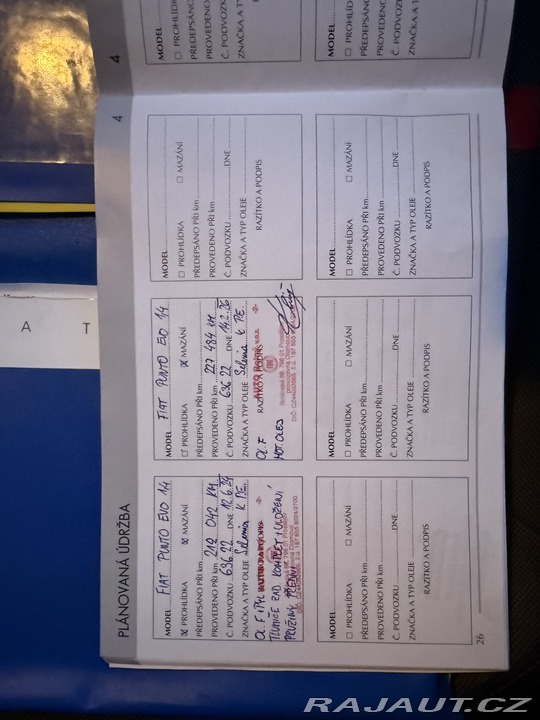 PLÁNOVANÁ ÚDRŽBA
4
MODEL FIAT PUNTO EVO 1.4
☒ PROHLÍDKA ☒ MAZÁNÍ
PŘEDEPSÁNO PŘI km
PROVEDENO PŘI km 212 042 KM
Č. PODVOZKU 63622 DNE 12.6.24
ZNAČKA A TYP OLEJE Selenia K P.E.
RAZÍTKO A PODPIS
OL. F + PYL
TLUMIČE ZAD. KOMPLET + ULOŽENÍ
PRUŽINY PŘEDNÍ
MODEL FIAT PUNTO EVO 1.4
☐ PROHLÍDKA ☒ MAZÁNÍ
PŘEDEPSÁNO PŘI km
PROVEDENO PŘI km 227 484 KM
Č. PODVOZKU 63622 DNE 14.2.26
ZNAČKA A TYP OLEJE Selenia K P.E.
RAZÍTKO A PODPIS
OL. F
MOT. OLEJ
MODEL
☐ PROHLÍDKA ☐ MAZÁNÍ
PŘEDEPSÁNO PŘI km
PROVEDENO PŘI km
Č. PODVOZKU DNE
ZNAČKA A TYP OLEJE
RAZÍTKO A PODPIS
MODEL
☐ PROHLÍDKA ☐ MAZÁNÍ
PŘEDEPSÁNO PŘI km
PROVEDENO PŘI km
Č. PODVOZKU DNE
ZNAČKA A TYP OLEJE
RAZÍTKO A PODPIS
MODEL
☐ PROHLÍDKA ☐ MAZÁNÍ
PŘEDEPSÁNO PŘI km
PROVEDENO PŘI km
Č. PODVOZKU DNE
ZNAČKA A TYP OLEJE
RAZÍTKO A PODPIS
MODEL
☐ PROHLÍDKA ☐ MAZÁNÍ
PŘEDEPSÁNO PŘI km
PROVEDENO PŘI km
Č. PODVOZKU DNE
ZNAČKA A TYP OLEJE
RAZÍTKO A PODPIS
26
4
MODEL
☐ PROHLÍDKA
PŘEDEPSÁNO
PROVEDENO
Č. PODVOZKU
ZNAČKA A TY
MODEL
☐ PROHLÍDK
PŘEDEPSÁN
PROVEDENO
Č. PODVOZK
ZNAČKA A T
A T
RAJAUT.CZ